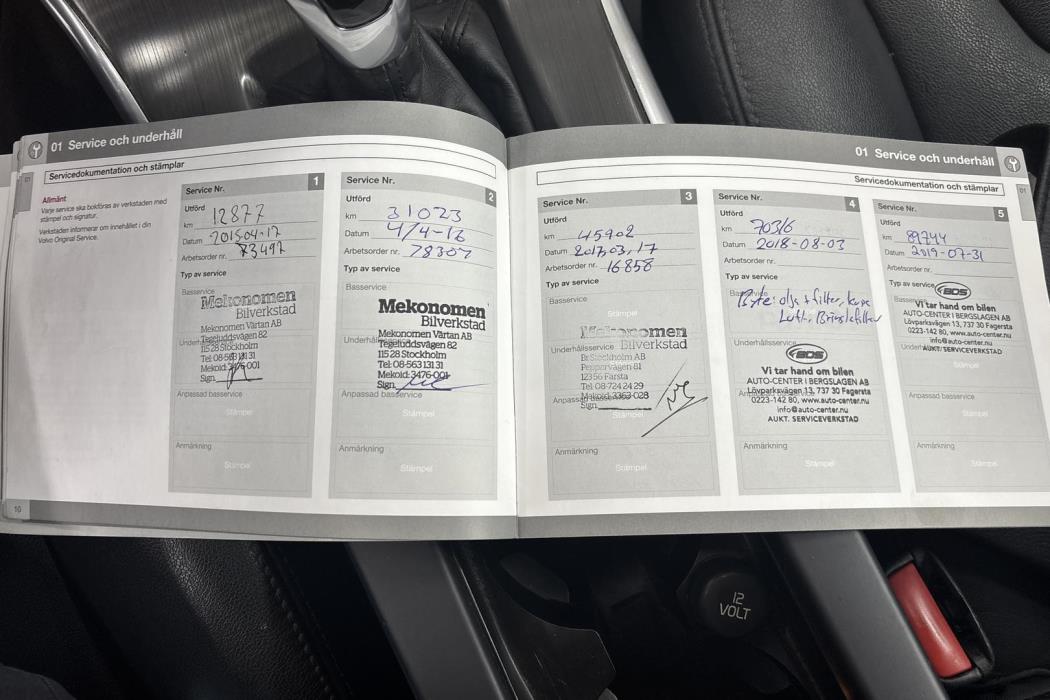 01 Service och underhåll
Servicedokumentation och stämplar
Allmänt
Varje service ska bokföras av verkstaden med
stämpel och signatur.
Verkstaden informerar om innehållet i din
Volvo Original Service.
10
Service Nr. 1
Utförd
km 12877
Datum 2015-04-17
Arbetsorder nr. 73497
Typ av service
Basservice
Mekonomen
Bilverkstad
Mekonomen Värtan AB
Tegeluddsvägen 82
115 28 Stockholm
Tel: 08-563 131 31
Mekoid: 3476-001
Sign.
Anpassad basservice
Stämpel
Anmärkning
Stämpel
Service Nr. 2
Utförd
km 31023
Datum 4/4-16
Arbetsorder nr. 78307
Typ av service
Basservice
Mekonomen
Bilverkstad
Mekonomen Värtan AB
Tegeluddsvägen 82
115 28 Stockholm
Tel: 08-563 131 31
Mekoid: 3476-001
Sign.
Anpassad basservice
Stämpel
Anmärkning
Stämpel
01 Service och underhåll
Servicedokumentation och stämplar
01
Service Nr. 3
Utförd
km 45902
Datum 2017.03.17
Arbetsorder nr. 16858
Typ av service
Basservice
Mekonomen
Underhållsservice Bilverkstad
Stockholm AB
Pepparvägen 81
123 56 Farsta
Tel: 08-724 24 29
Mekoid: 3363-028
Sign.
Stämpel
Anmärkning
Stämpel
Service Nr. 4
Utförd
km 70316
Datum 2018-08-03
Arbetsorder nr.
Typ av service
Byte: olja + filter, kupe
Luft, Bränslefilter
Underhållsservice
BDS
Vi tar hand om bilen
AUTO-CENTER I BERGSLAGEN AB
Lövparksvägen 13, 737 30 Fagersta
0223-142 80, www.auto-center.nu
info@auto-center.nu
AUKT. SERVICEVERKSTAD
Anmärkning
Stämpel
Service Nr. 5
Utförd
km 89744
Datum 2019-07-31
Arbetsorder nr.
Typ av service
BDS
Vi tar hand om bilen
AUTO-CENTER I BERGSLAGEN AB
Lövparksvägen 13, 737 30 Fagersta
0223-142 80, www.auto-center.nu
info@auto-center.nu
AUKT. SERVICEVERKSTAD
Stämpel
Anpassad basservice
Stämpel
Anmärkning
Stämpel
12
VOLT